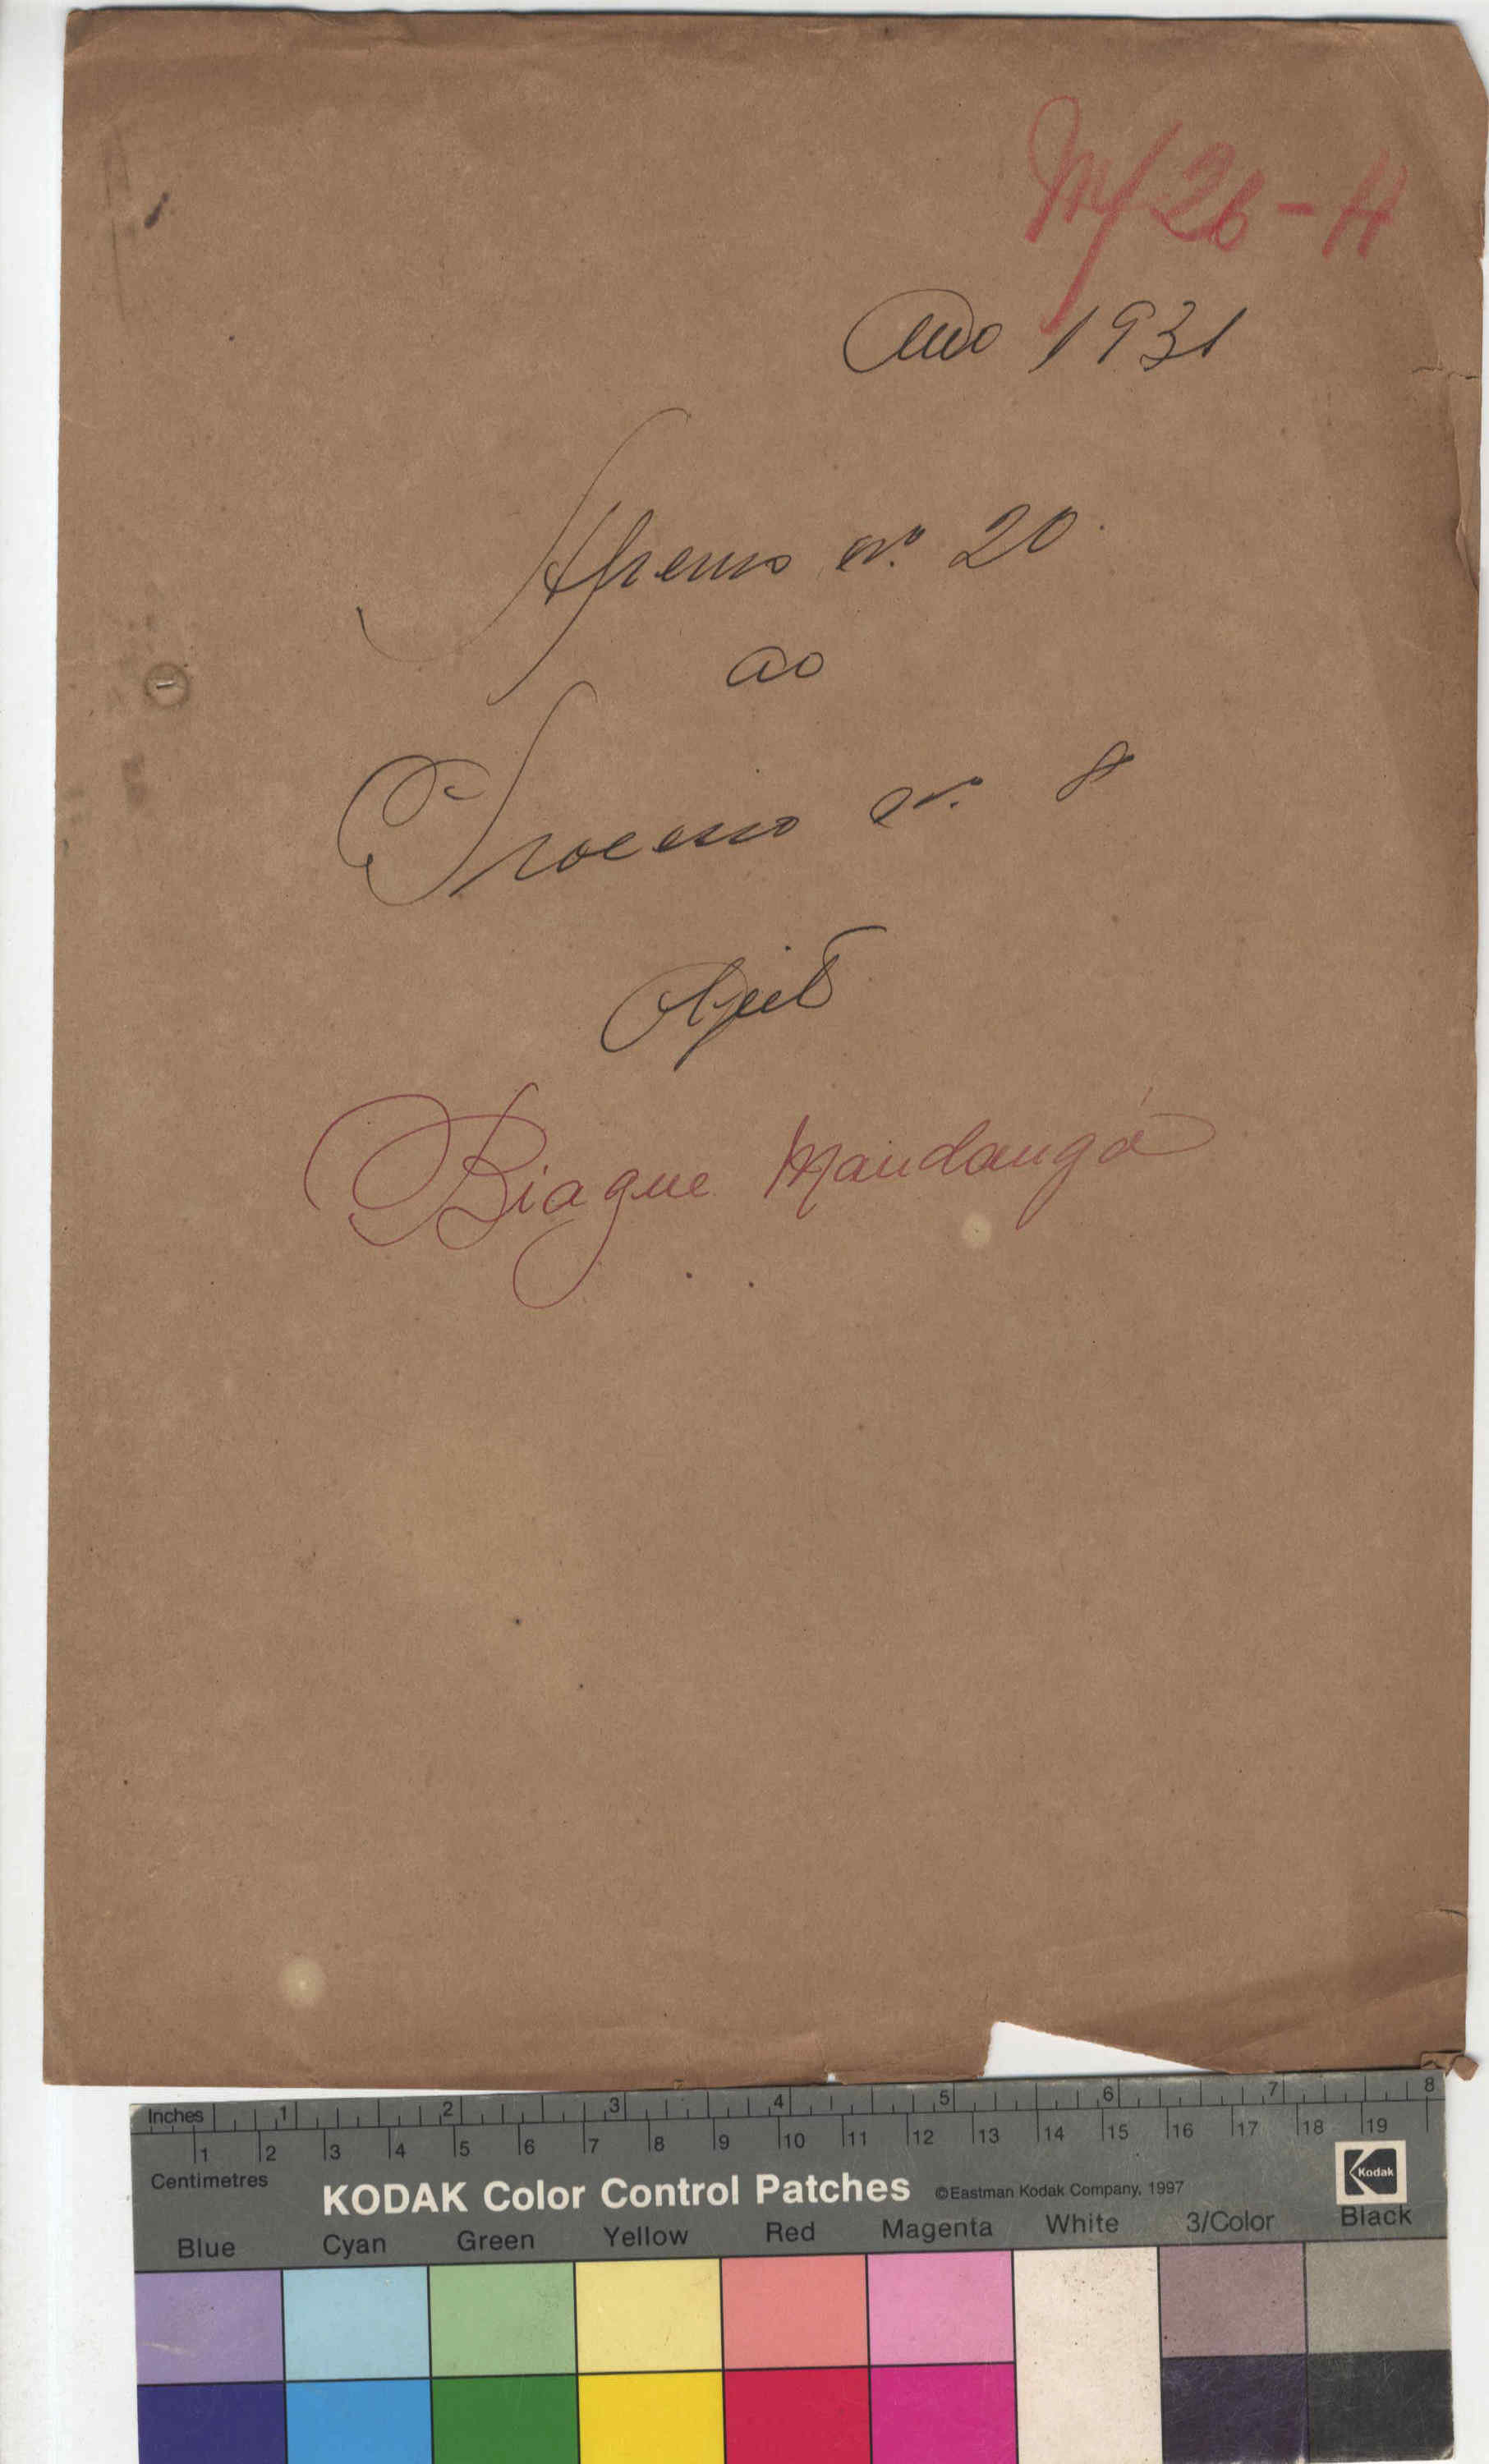 M/26-H
Ano 1931
Apenso nº. 20.
ao
Processo nº. 8
Objeto
Biague Mandangá
Inches 1 2 3 4 5 6 7 8
1 2 3 4 5 6 7 8 9 10 11 12 13 14 15 16 17 18 19
Centimetres
KODAK Color Control Patches ©Eastman Kodak Company, 1997 Kodak
Blue Cyan Green Yellow Red Magenta White 3/Color Black